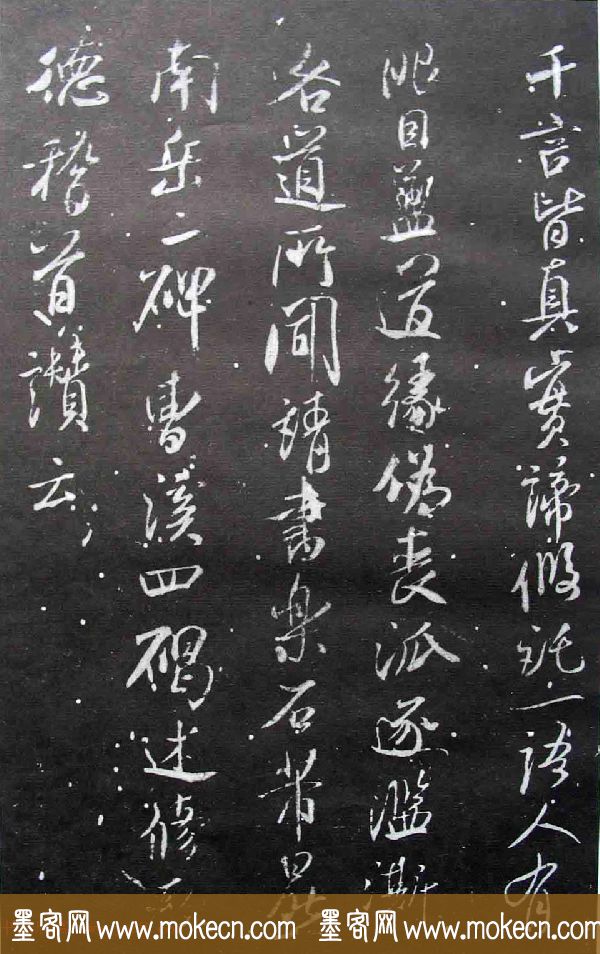 千言皆真實諦假託一語人有
眼目蓋道緣偽喪派逐濫
咨道所聞請書樂石
南岳二碑曹溪四碣述修
德稽首讚云
墨客网 www.mokecn.com 墨客网 www.mokecn.com